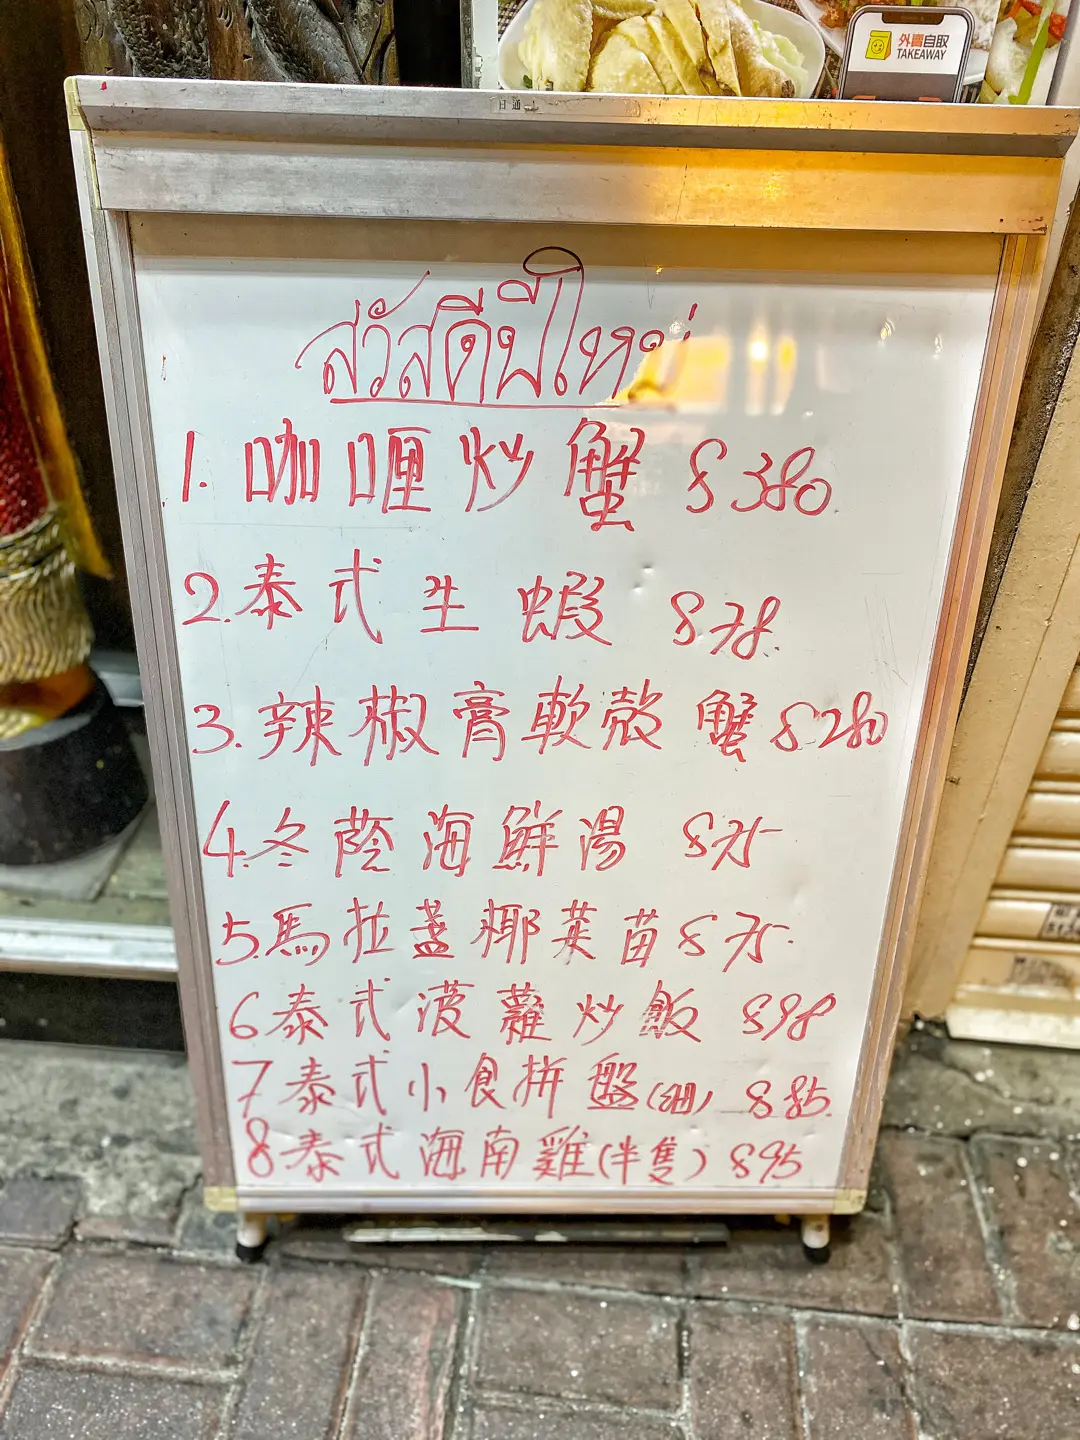 外賣自取
TAKEAWAY
日通
สวัสดีปีใหม่
1. 咖喱炒蟹 $380
2. 泰式生蝦 $78.
3. 辣椒膏軟殼蟹 $280
4. 冬蔭海鮮湯 $75
5. 馬拉盞椰菜苗 $75.
6 泰式菠蘿炒飯 $98
7 泰式小食拼盤(細) $85.
8 泰式海南雞(半隻) $95